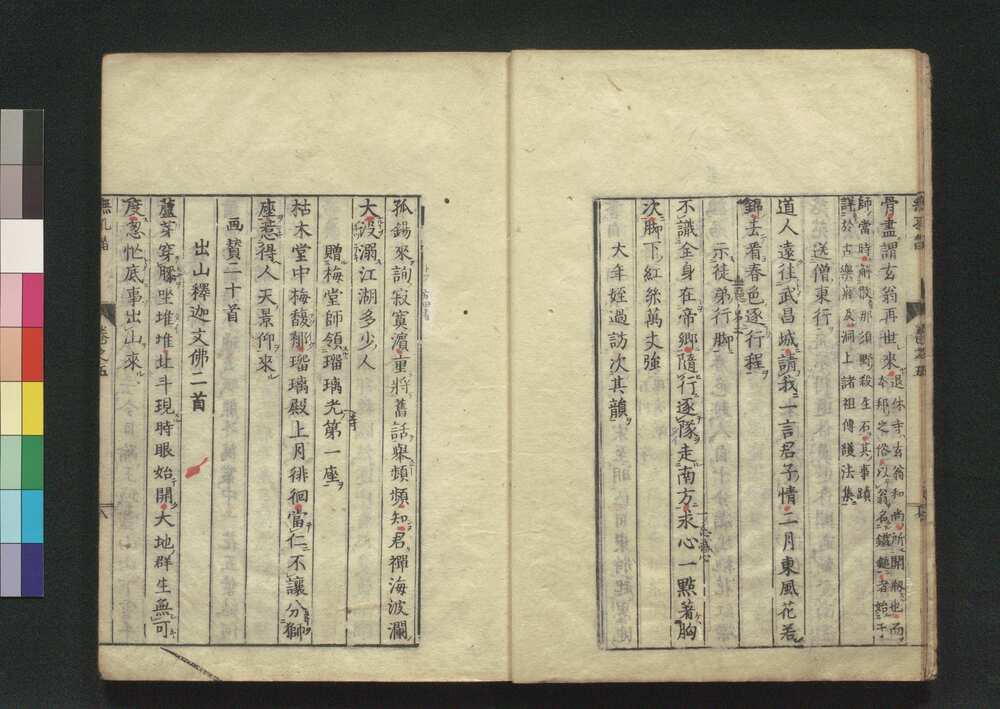 骨盡謂玄翁再世來
退休寺玄翁和尚所開刱也而
本邦之俗以翁名鐵鎚者始于
師當時解散那須野殺生石其事蹟
詳於古樂府及洞上諸祖傳護法集
送僧東行
道人遠往武昌城請我一言君子情二月東風花若
錦去看春色逐行程
示徒弟行脚
不識全身在帝鄉隨行逐隊走南方求心一點著胸
次脚下紅絲萬丈強
大年姪過訪次其韻
孤錫來詢寂寞濵重將舊話舉頻頻知君禪海波瀾
大沒溺江湖多少人
贈梅堂師領瑠璃光第一座
枯木堂中梅馥郁瑠璃殿上月徘徊當仁不讓分獅
座惹得人天景仰來
画賛二十首
出山釋迦文佛二首
蘆芽穿膝坐堆堆北斗現時眼始開大地群生無可
度怱忙底事出山來
無孔笛